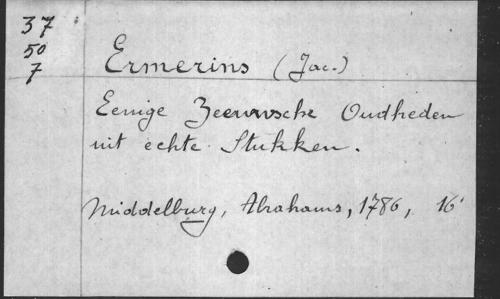 37
50
7
Ermerins (Jac.)
Eenige Zeeuwsche Oudheden
uit echte Stukken.
Middelburg, Abrahams, 1786, 16°